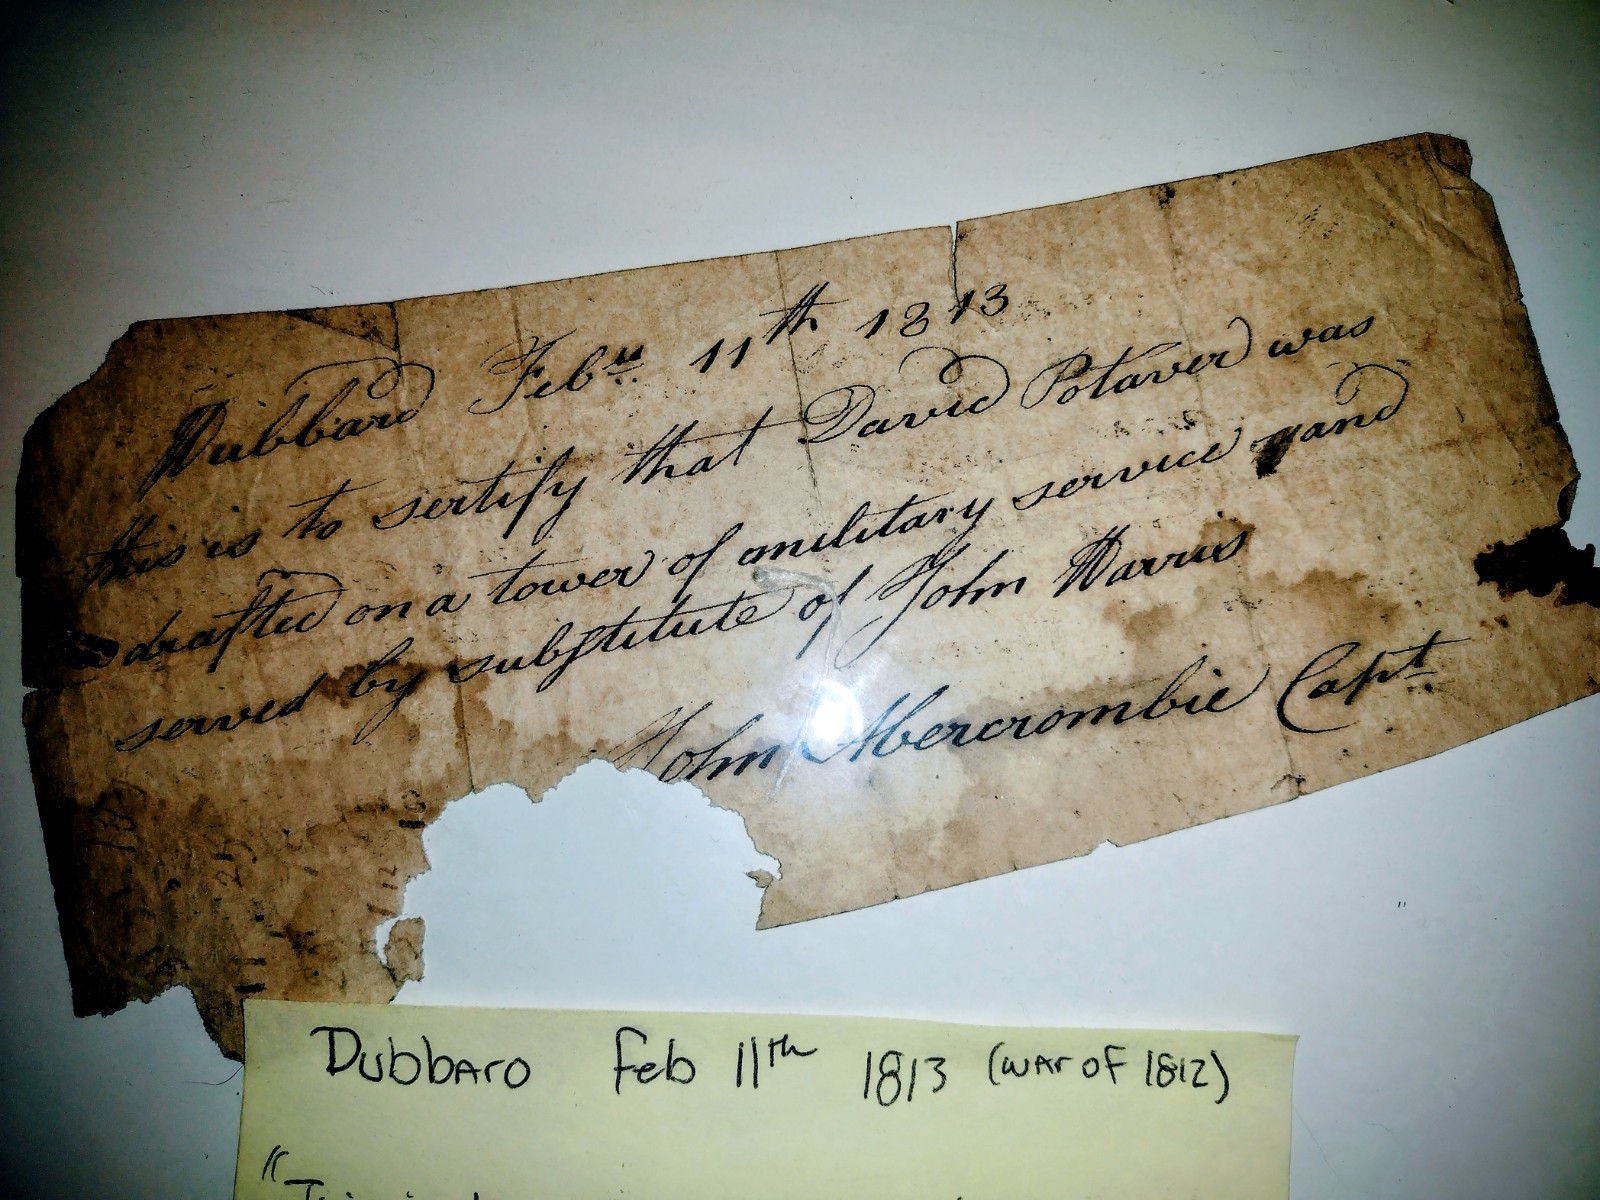 Hubbard Feby 11th 1813
this is to sertify that David Potaver was
drafted on a tower of amilitary service and
served by substitute of John Harris
John Abercrombie Capt.
Dubbaro Feb 11th 1813 (war of 1812)